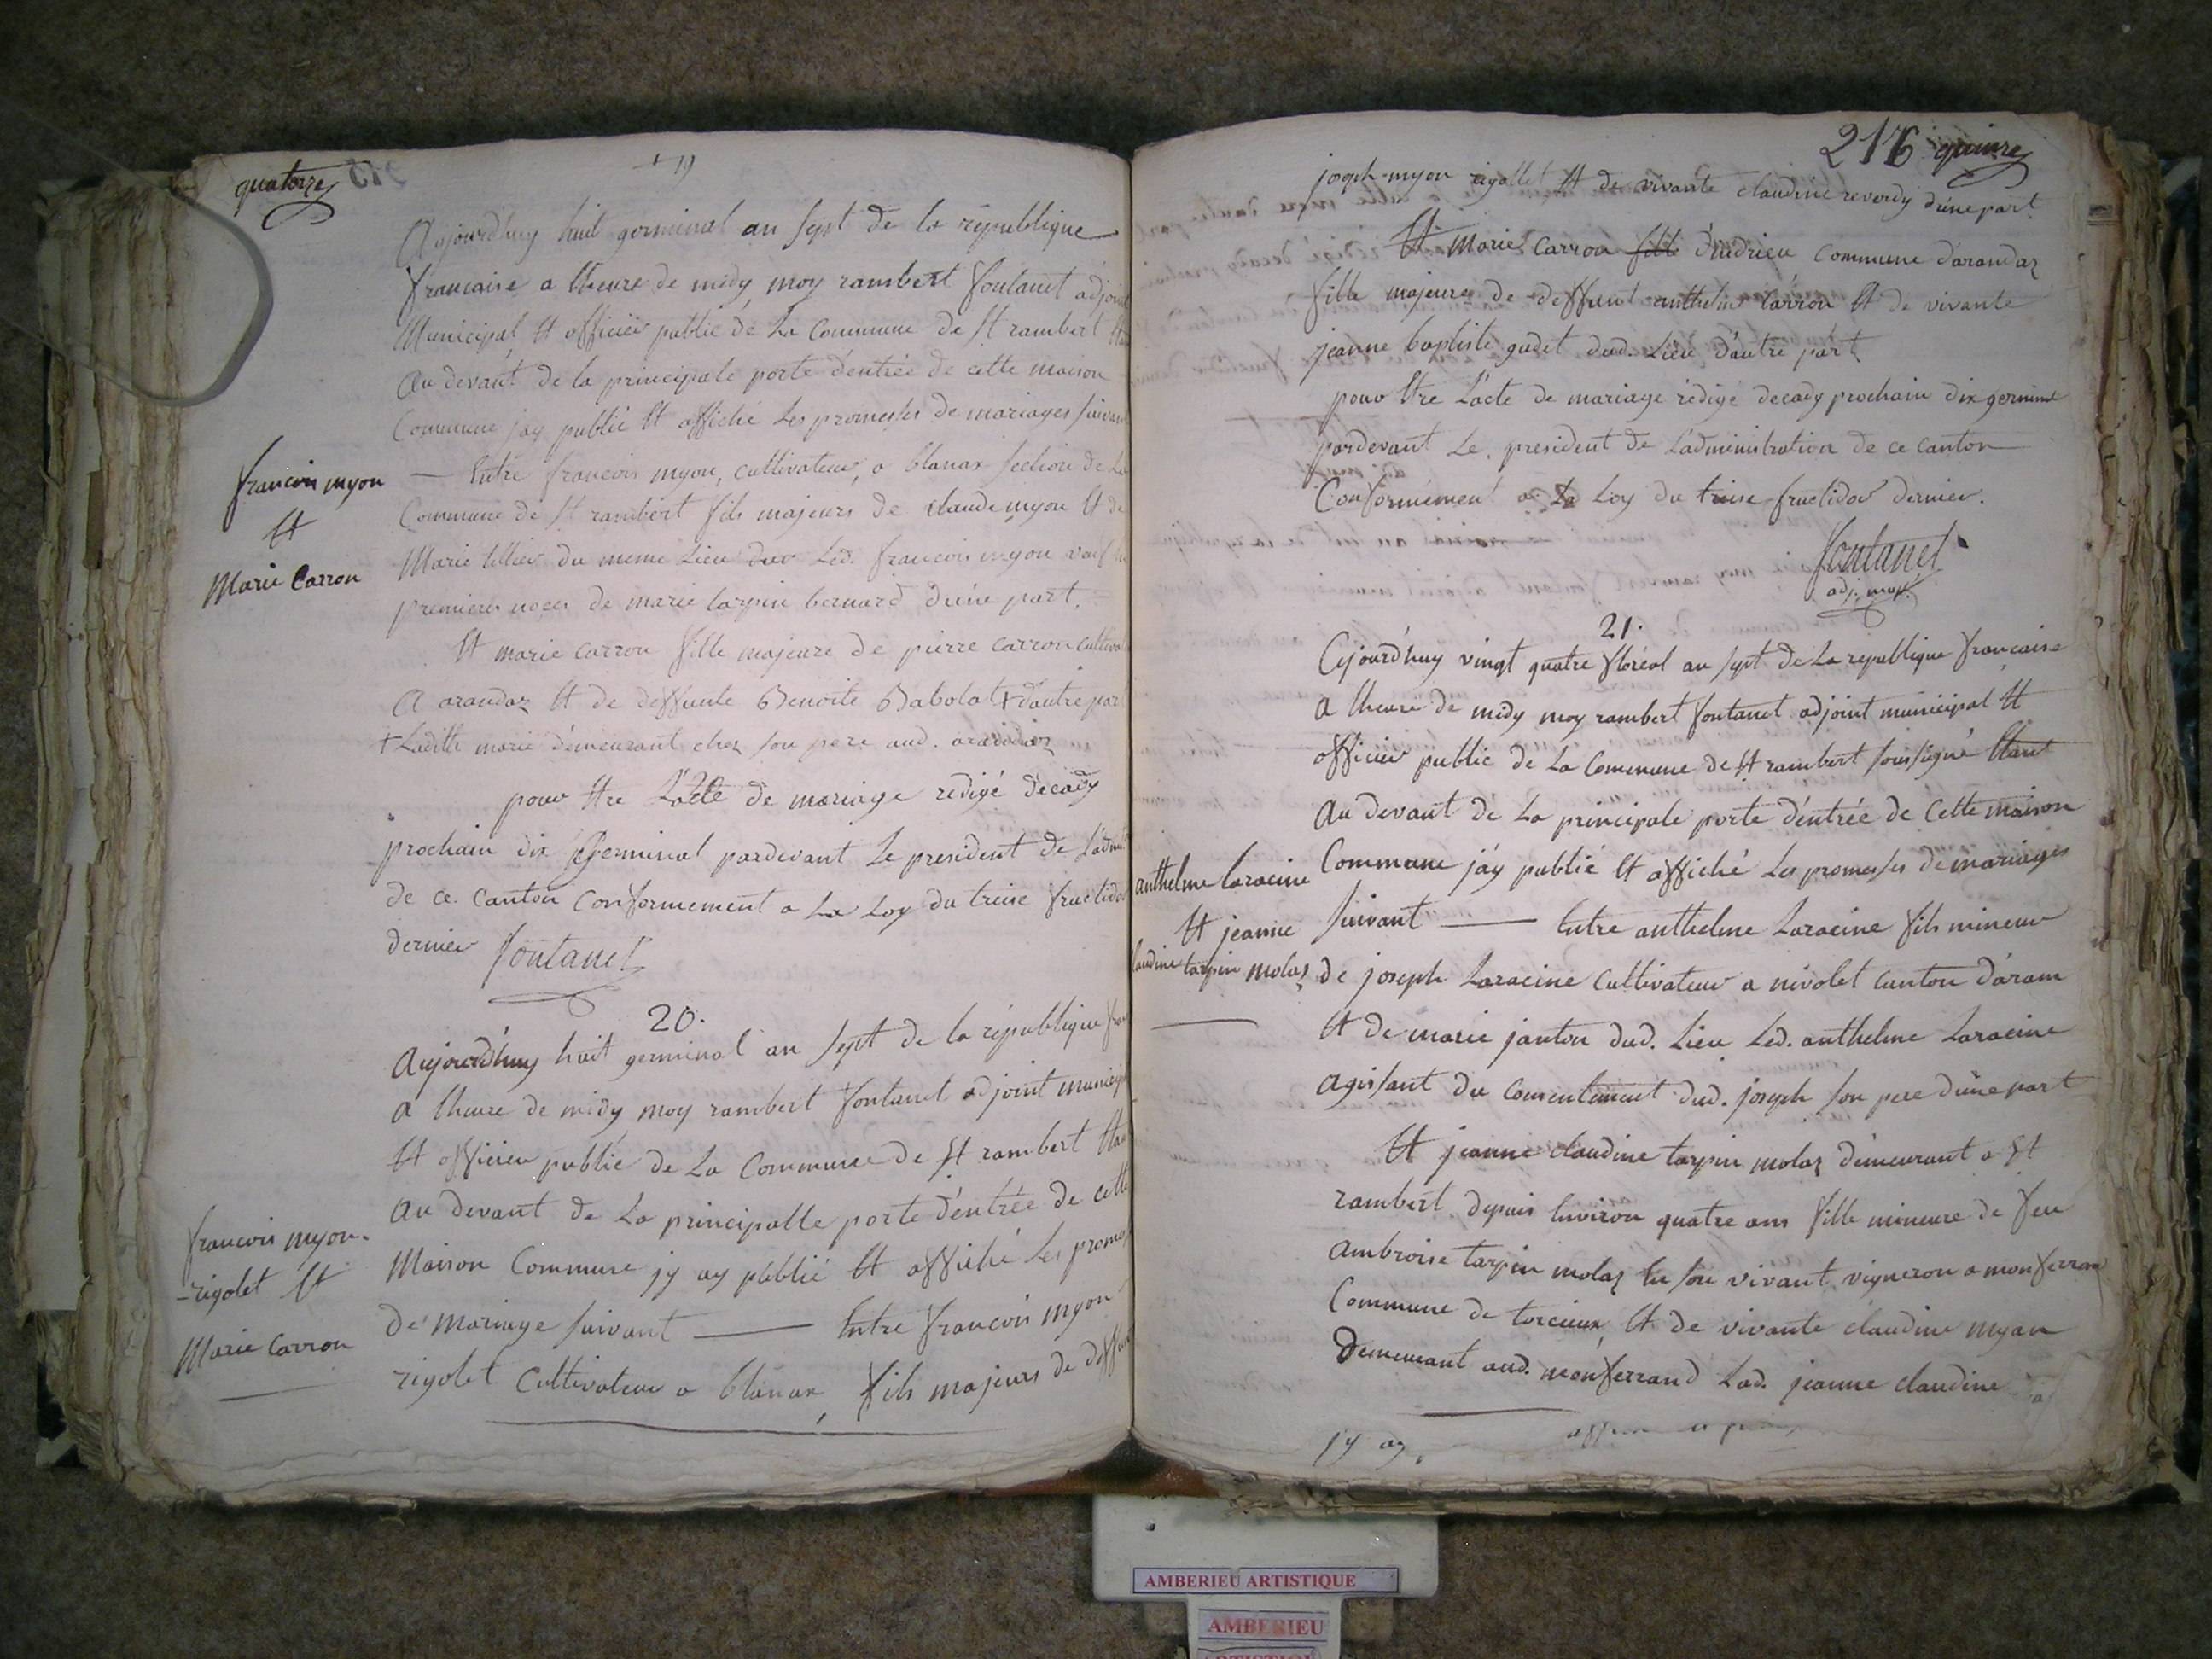 quatorze
19
Aujourd'huy huit germinal an sept de la république
francaise a lheure de midy, moy rambert fontanet adjoint
Municipal Et officier public de La Commune de St rambert
Au devant de la principale porte d'entrée de cette maison
Commune jay publié Et affiché Les promesses de mariages suivant
francois myon
Et
Marie Carron
— Entre francois myon, cultivateur, a blanax section de La
Commune de St rambert fils majeurs de Claude myon Et de
Marie du meme Lieu Led. francois myon veuf
premieres noces de marie tarpin bernard d'une part.
Et marie carron fille majeure de pierre carron
A arandaz Et de deffunte Benoite Babolat + d'autre part
+ Laditte marie demeurant chez son pere aud. arandaz
pour Etre L'acte de mariage redigé décady
prochain dix Germinal pardevant Le president de
de ce Canton Conformement a La Loy du treise fructidor
dernier fontanet
20.
Aujourd'huy huit germinal an sept de la république
a lheure de midy moy rambert fontanet adjoint
Et officier public de La Commune de St rambert
Au devant de La principalle porte d'entrée de cette
Maison Commune jy ay publié Et affiché Les
de mariage suivant — Entre francois myon
rigolet Cultivateur a blanax, fils majeurs de
francois myon.
-rigolet Et
Marie Carron
216 quinze
joseph-myon rigollet Et de vivante claudine reverdy d'une part.
Et marie Carron fille d'indrieu Commune d'arandaz
fille majeure de deffunt anthelme Carron Et de vivante
jeanne baptiste gudet dud. Lieu d'autre part
pour Etre L'acte de mariage rédigé decady prochain dix germinal
pardevant Le. president de L'administration de ce canton
Conformément a La Loy du treise fructidor dernier.
fontanet
adj. mup.
21.
Cejourd'huy vingt quatre floréal an sept de La republique francaise
A lheure de midy moy rambert fontanet adjoint municipal Et
officier public de La Commune de St rambert soussigné Etant
Au devant de La principale porte d'entrée de Cette maison
Commune j'ay publié Et affiché Les promesses de mariages
suivant — Entre anthelme Laracine fils mineur
anthelme Laracine
Et jeanne
claudine tarpin molaz
de joseph Laracine Cultivateur a nivolet canton d'aram
Et de marie janton dud. Lieu Led. anthelme Laracine
agissant du Consentement dud. joseph son pere d'une part
Et jeanne claudine tarpin molaz demeurant a St
rambert depuis Environ quatre ans fille mineure de feu
Ambroise tarpin molaz En son vivant vigneron a monferrand
Commune de torcieux, Et de vivante claudine myan
Demeurant aud. monferrand Lad. jeanne claudine
jy ay
AMBERIEU ARTISTIQUE
AMBERIEU
ARTISTIQUE